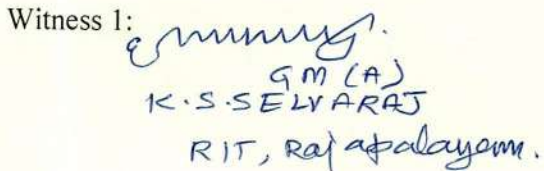 Witness 1:
GM (A)
K.S.SELVARAJ
RIT, Rajapalayam.